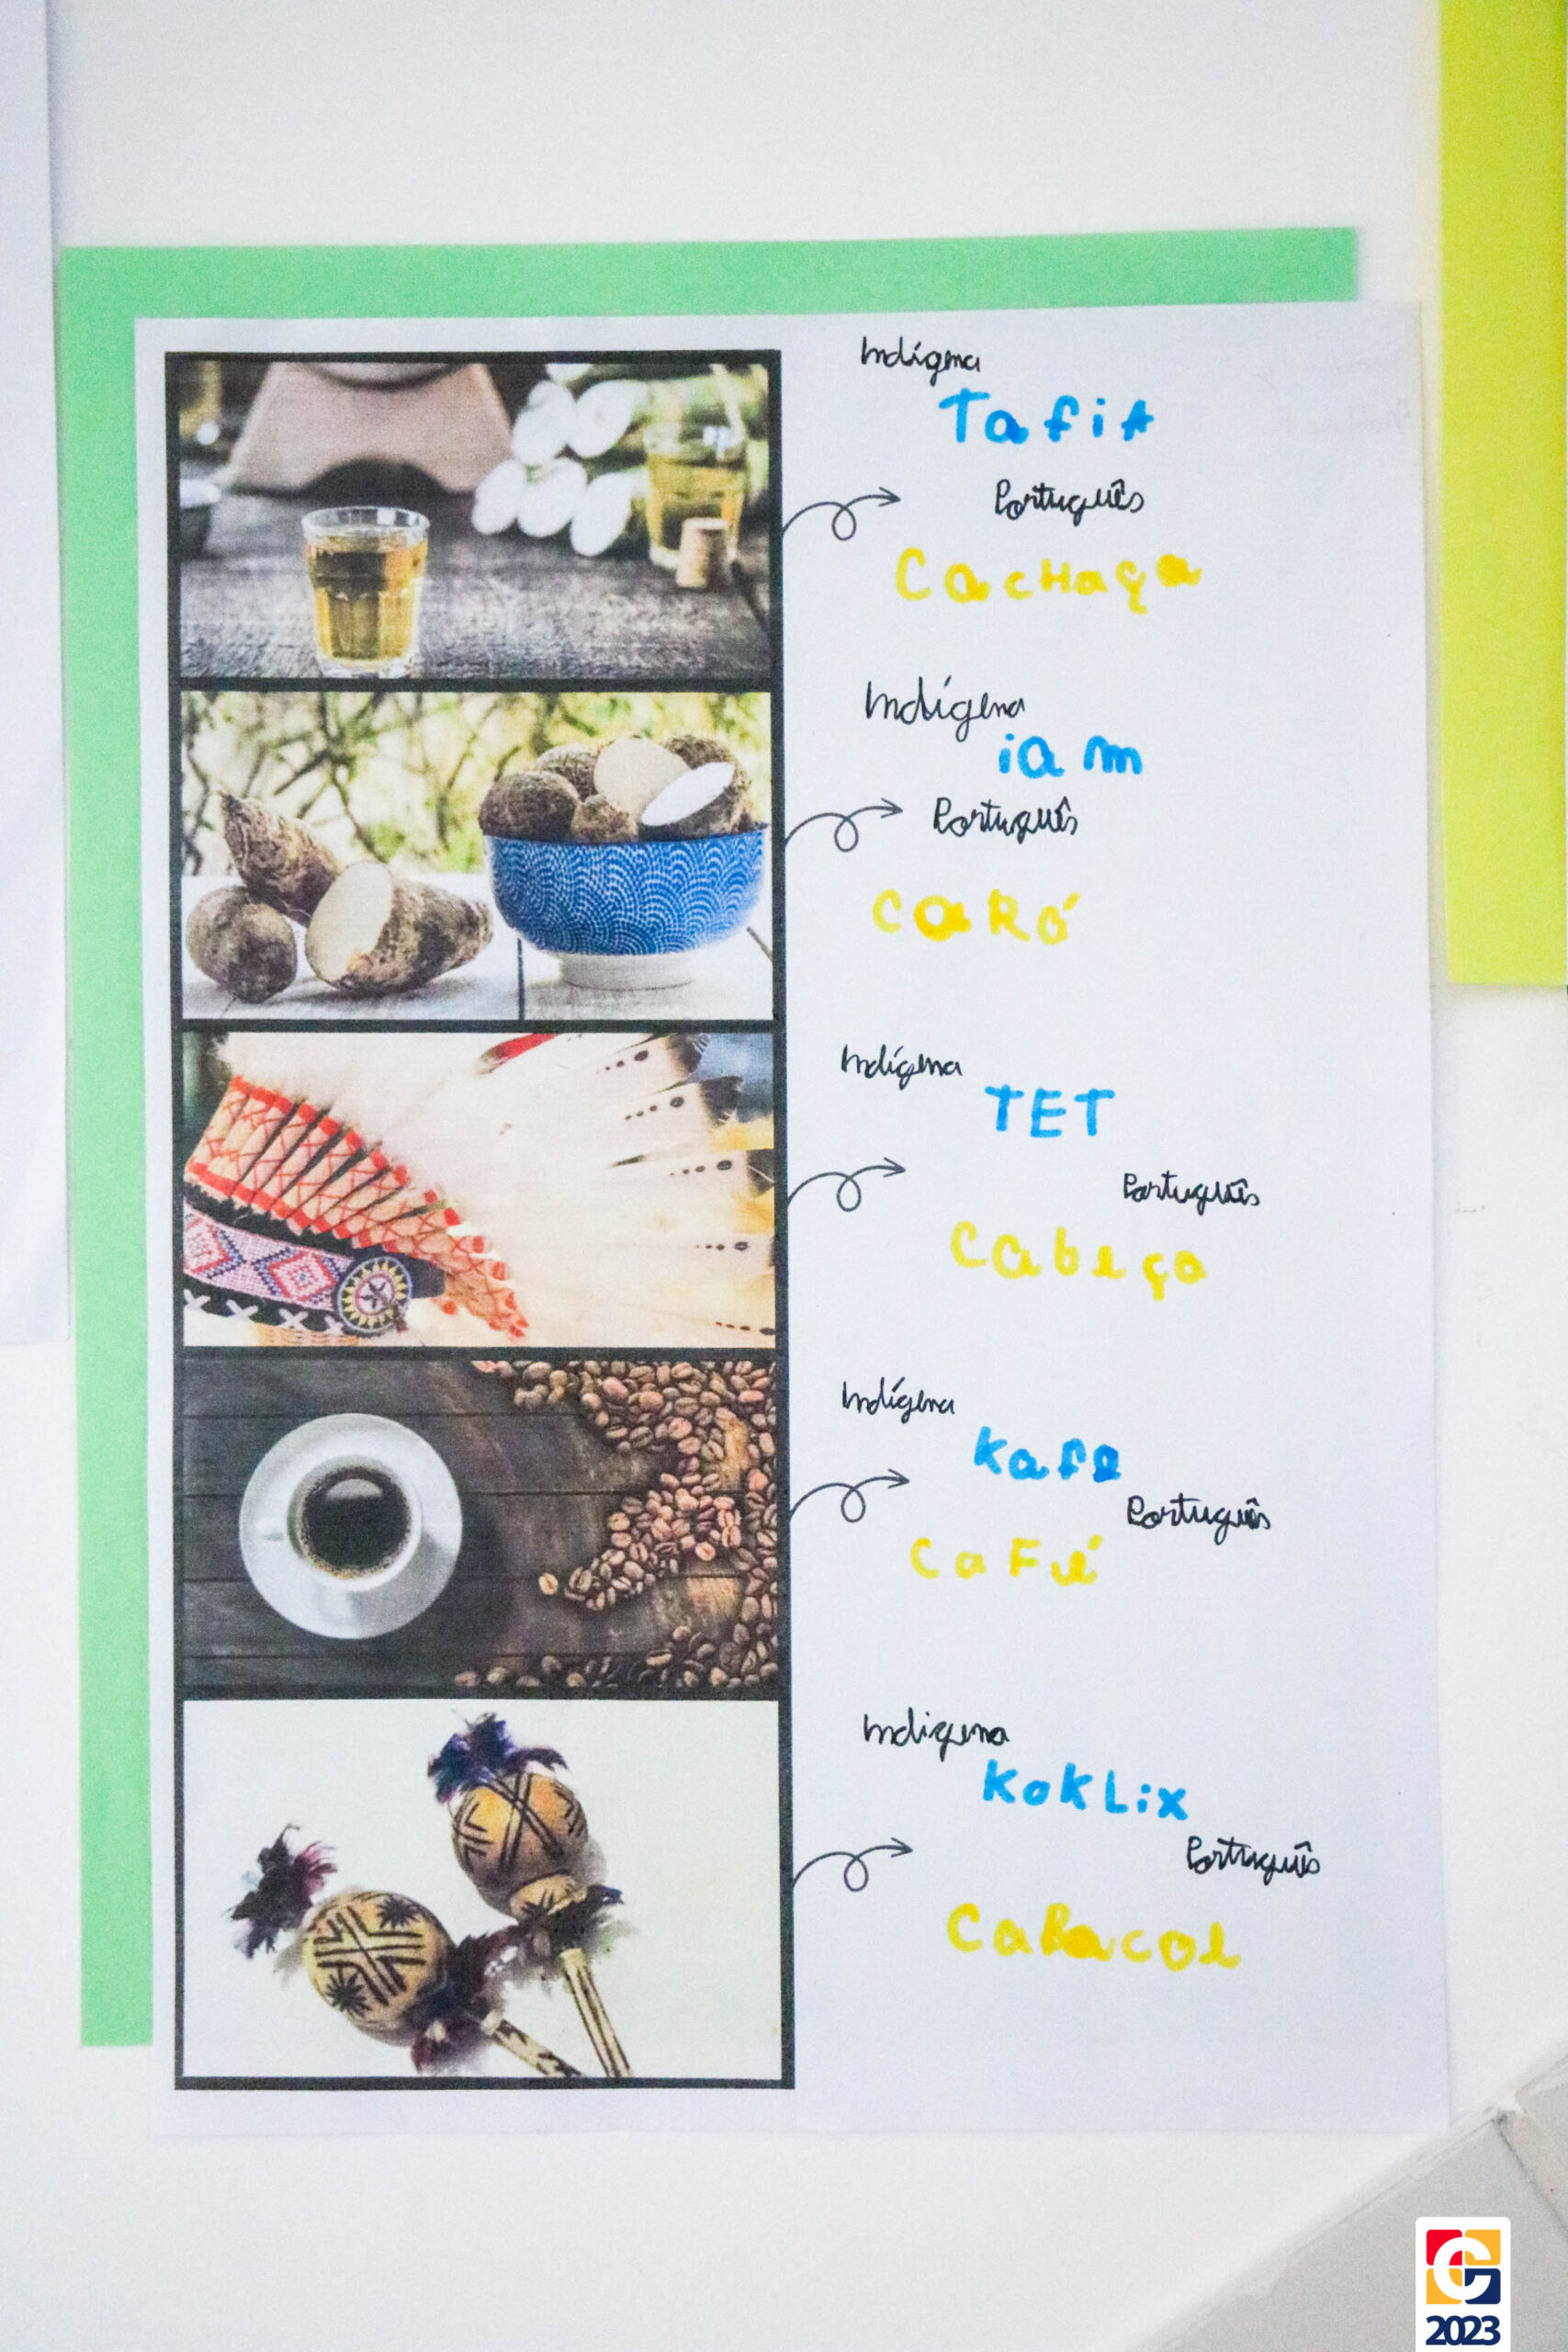 Indígena
Tafia
Português
Cachaça
Indígena
iam
Português
CaRá
Indígena
TET
Português
Cabeça
Indígena
Kafe
Português
CaFé
Indigena
KOKLix
Português
CaRacol
2023